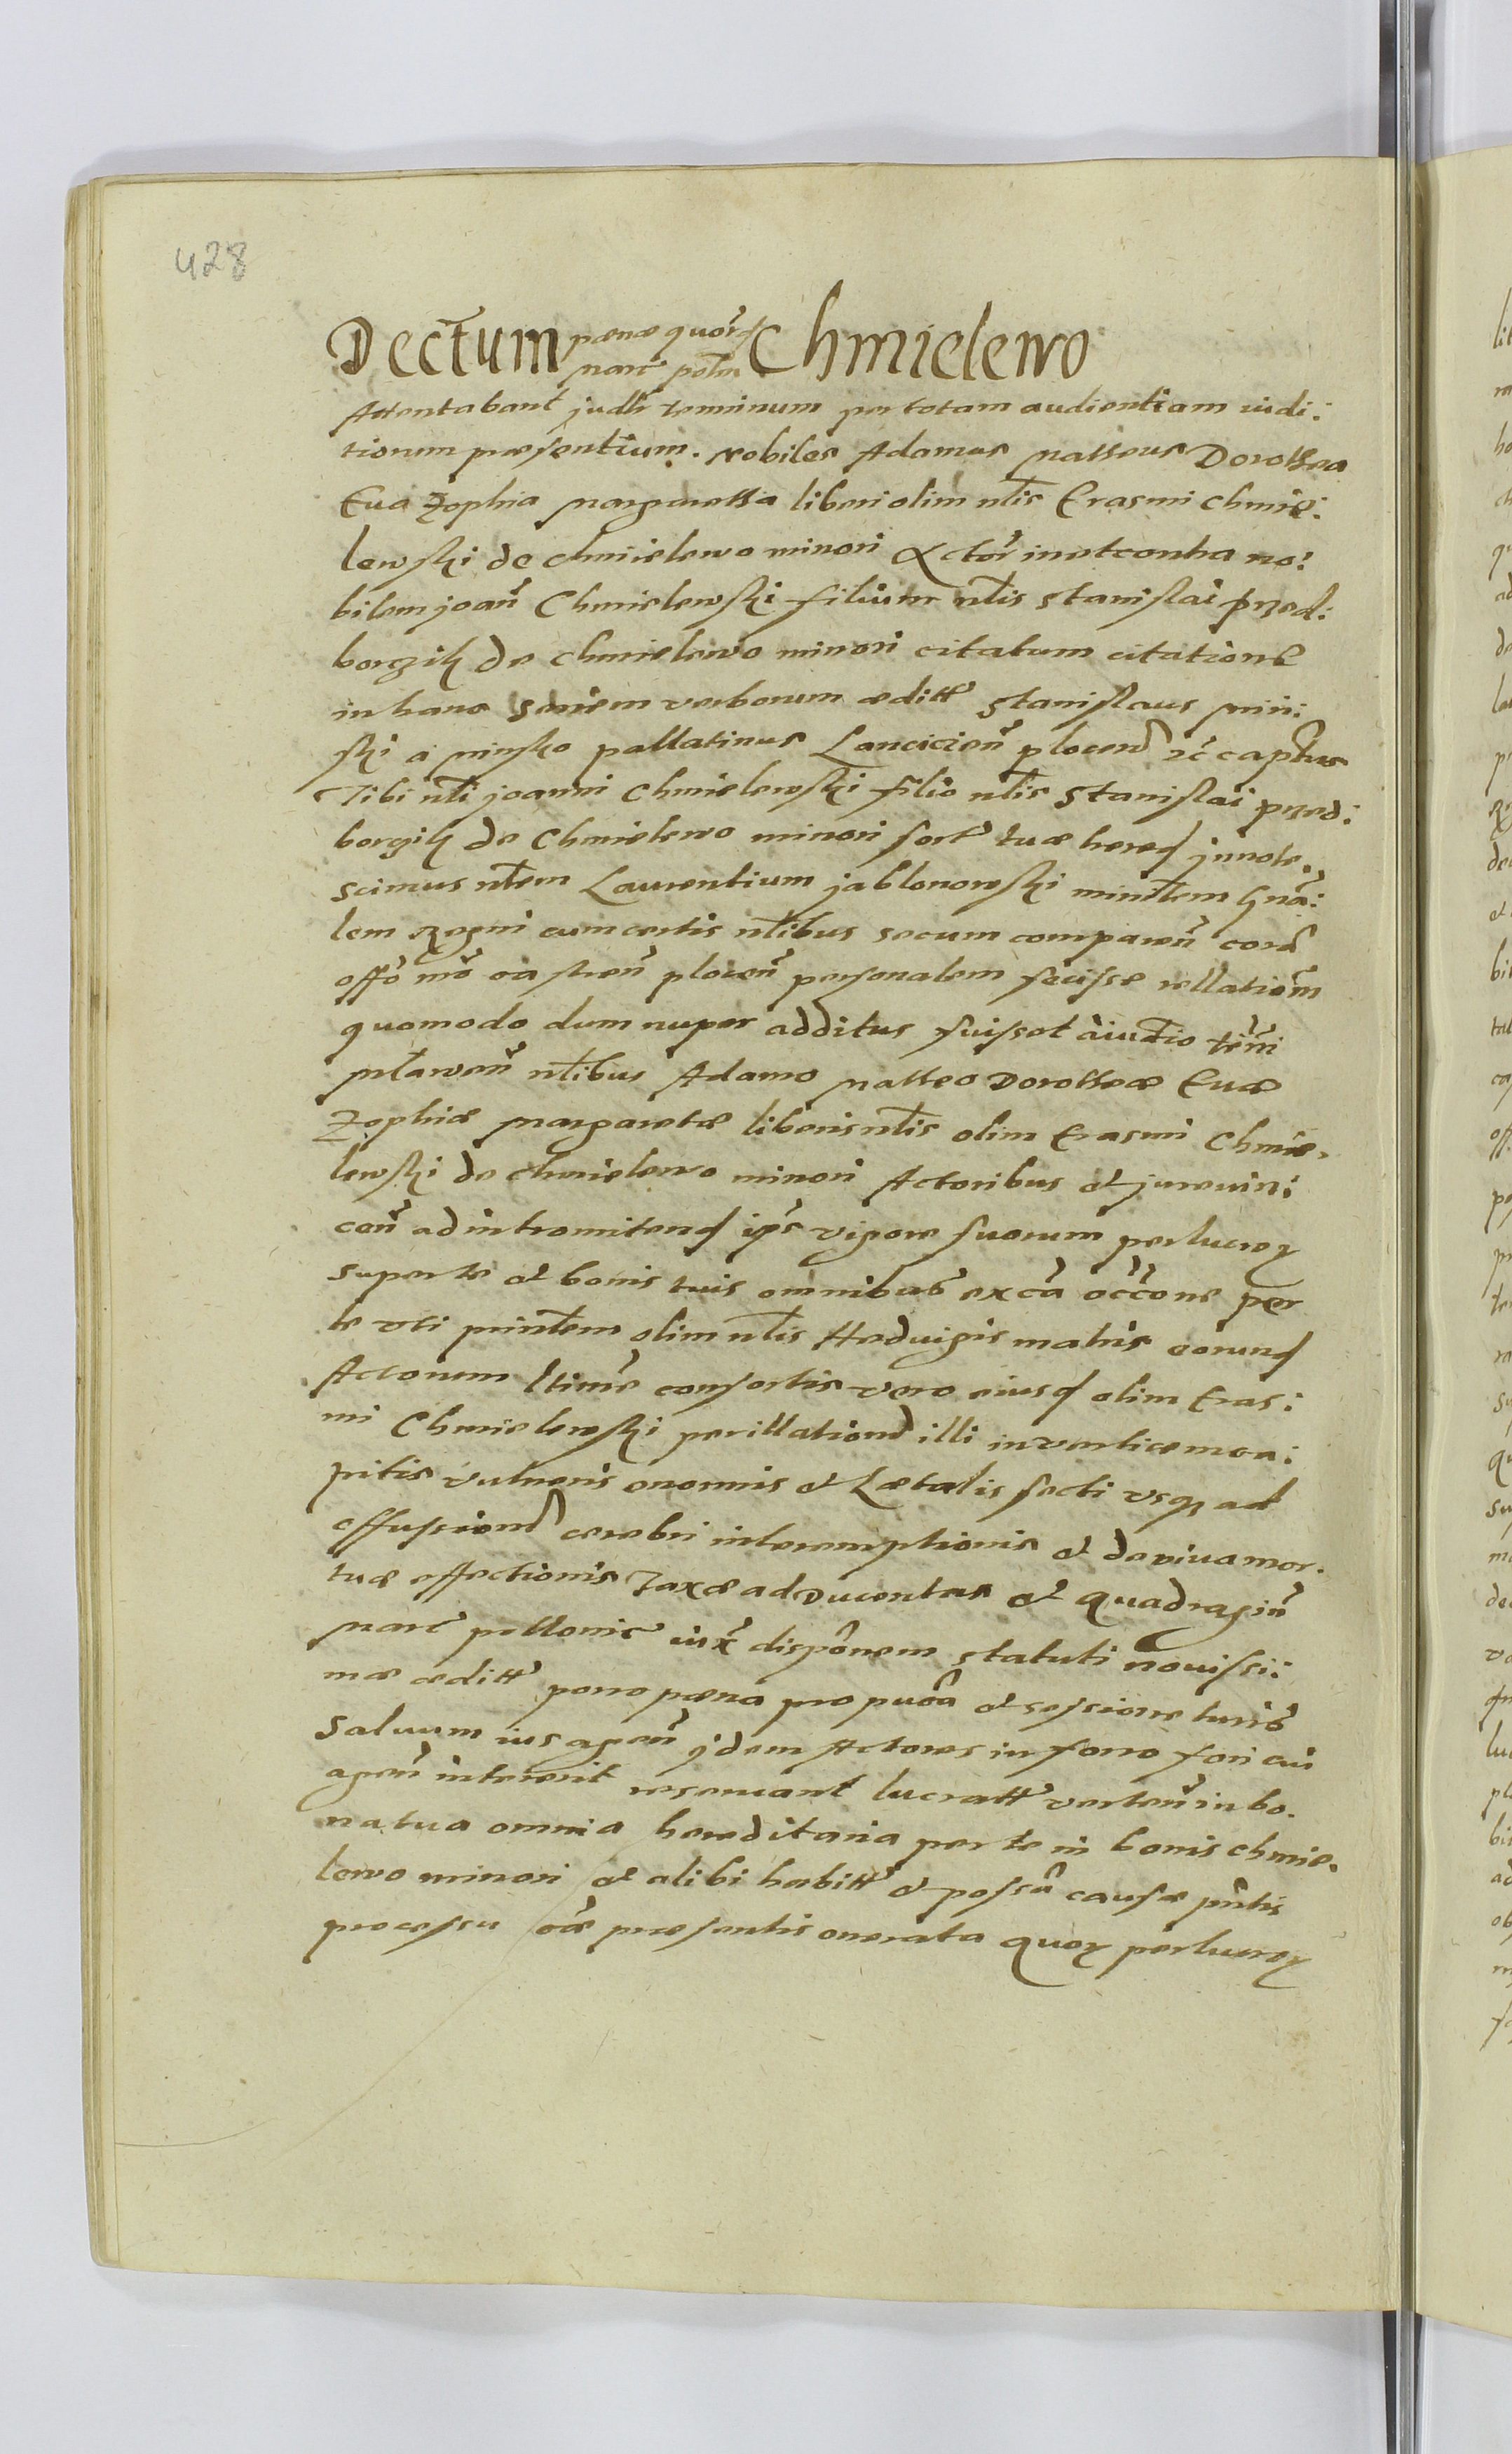 428
Dectum pænæ quorq Chmielewo
marc polon
Attentabant judlr terminum per totam audientiam iudi:
tiorum præsentium. Nobiles Adamus Matheus Dorothea
Eua Zophia Margaretha liberi olim nlis Erasmi Chmie:
lewski de Chmielewo minori Actor in et contra no:
bilem joan Chmielewski filium nlis Stanislai Przed:
borgik de Chmielewo minori citatum citatione
in hanc seriem verborum æditt Stanislaus Min:
ski a Minsko pallatinus Lancicien plocen zc captus
Tibi nli joanni Chmielewski filio nlis Stanislai Przed:
borgik de Chmielewo minori sort tuæ hered jnnote.
scimus nlem Laurentium jablonowski minrlem gnã:
lem Regni cum certis nlibus secum comparen corã
offo mõ castren plocen personalem fecisse rellatiom
quomodo dum nuper additus fuisset a iudio termi
mlawen nlibus Adamo Matteo Dorotheæ Euæ
Zophiæ Margaretæ liberis nlis olim Erasmi Chmie.
lewski de Chmielewo minori Actoribus et jurevin:
cen ad intromitend ips vigore suorum perlucroz
super te et bonis tuis omnibus ex cã occone per
te vti printem olim nlis Heduigis matris eorund
Actorum ltime consortis vero eiusd olim Eras:
mi Chmielewski per illationem illi in verticem ca:
pitis vulneris enormis et Lætalis secti vsq ad
effussionem cerebri interemptionis et de viua mor.
tuæ effectionis Taxæ ad Ducentas et quadragin
marc pollonic iux disponem Statuti nouissi:
mæ æditt porro pæna pro puorã et sessione turris
saluum ius agen jdem Actores in foro fori cui
agen intererit reseruant lucratt verten in bo.
na tua omnia hereditaria per te in bonis Chmie.
lewo minori et alibi habitt et possã causæ pntis
processu cãe præsentis onerata quoz perlucroz